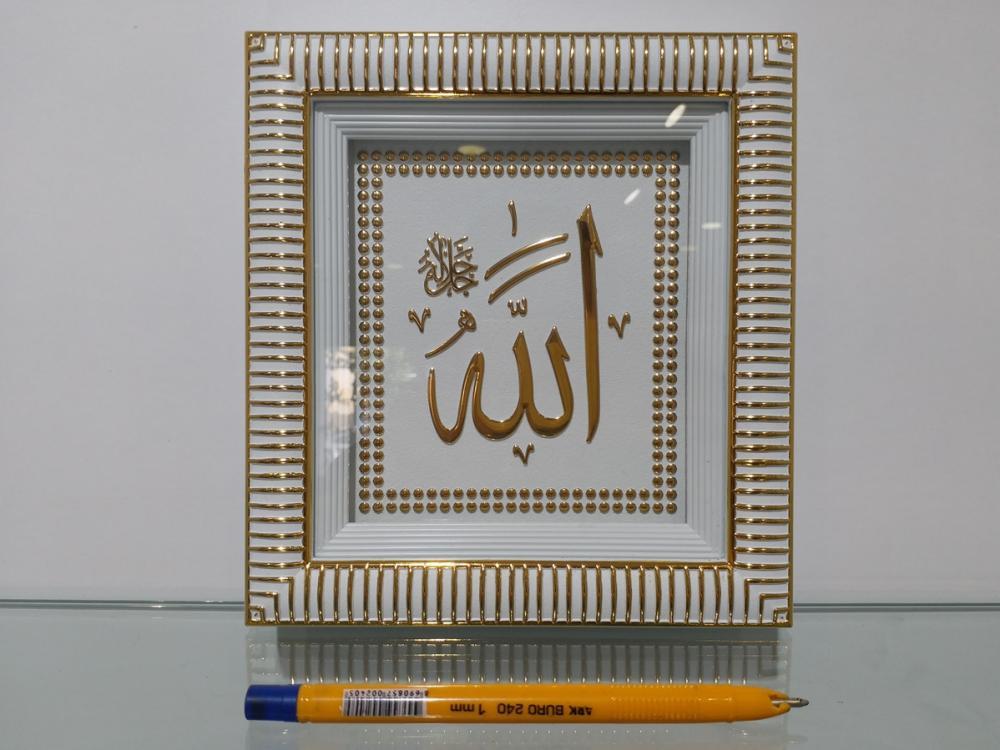 الله
جل جلاله
ARK BURO 240 1 mm
8690857002405